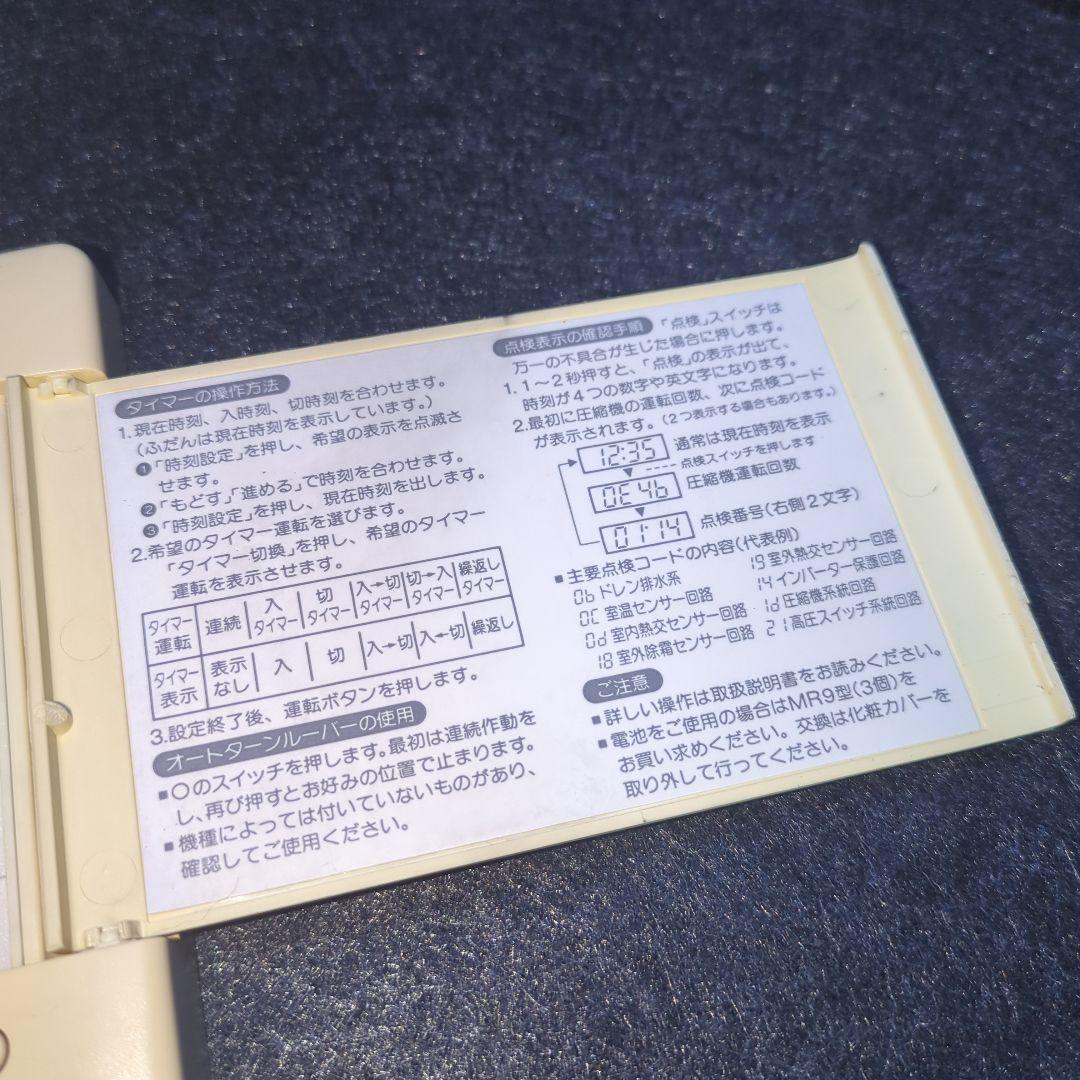 タイマーの操作方法
1.現在時刻、入時刻、切時刻を合わせます。
(ふだんは現在時刻を表示しています。)
❶「時刻設定」を押し、希望の表示を点滅さ
せます。
❷「もどす」「進める」で時刻を合わせます。
❸「時刻設定」を押し、現在時刻を出します。
2.希望のタイマー運転を選びます。
「タイマー切換」を押し、希望のタイマー
運転を表示させます。
タイマー運転 連続 入タイマー 切タイマー 入→切タイマー 切→入タイマー 繰返しタイマー
タイマー表示 表示なし 入 切 入→切 入←切 繰返し
3.設定終了後、運転ボタンを押します。
オートターンルーバーの使用
■〇のスイッチを押します。最初は連続作動を
し、再び押すとお好みの位置で止まります。
■機種によっては付いていないものがあり、
確認してご使用ください。
点検表示の確認手順 「点検」スイッチは
万一の不具合が生じた場合に押します。
1.1~2秒押すと、「点検」の表示が出て、
時刻が4つの数字や英文字になります。
2.最初に圧縮機の運転回数、次に点検コード
が表示されます。(2つ表示する場合もあります。)
12:35 通常は現在時刻を表示
点検スイッチを押します
0E46 圧縮機運転回数
01:14 点検番号(右側2文字)
■主要点検コードの内容(代表例)
0b ドレン排水系
0C 室温センサー回路
0d 室内熱交センサー回路
18 室外除霜センサー回路
19 室外熱交センサー回路
14 インバーター保護回路
1d 圧縮機系統回路
21 高圧スイッチ系統回路
ご注意
■詳しい操作は取扱説明書をお読みください。
■電池をご使用の場合はMR9型(3個)を
お買い求めください。交換は化粧カバーを
取り外して行ってください。